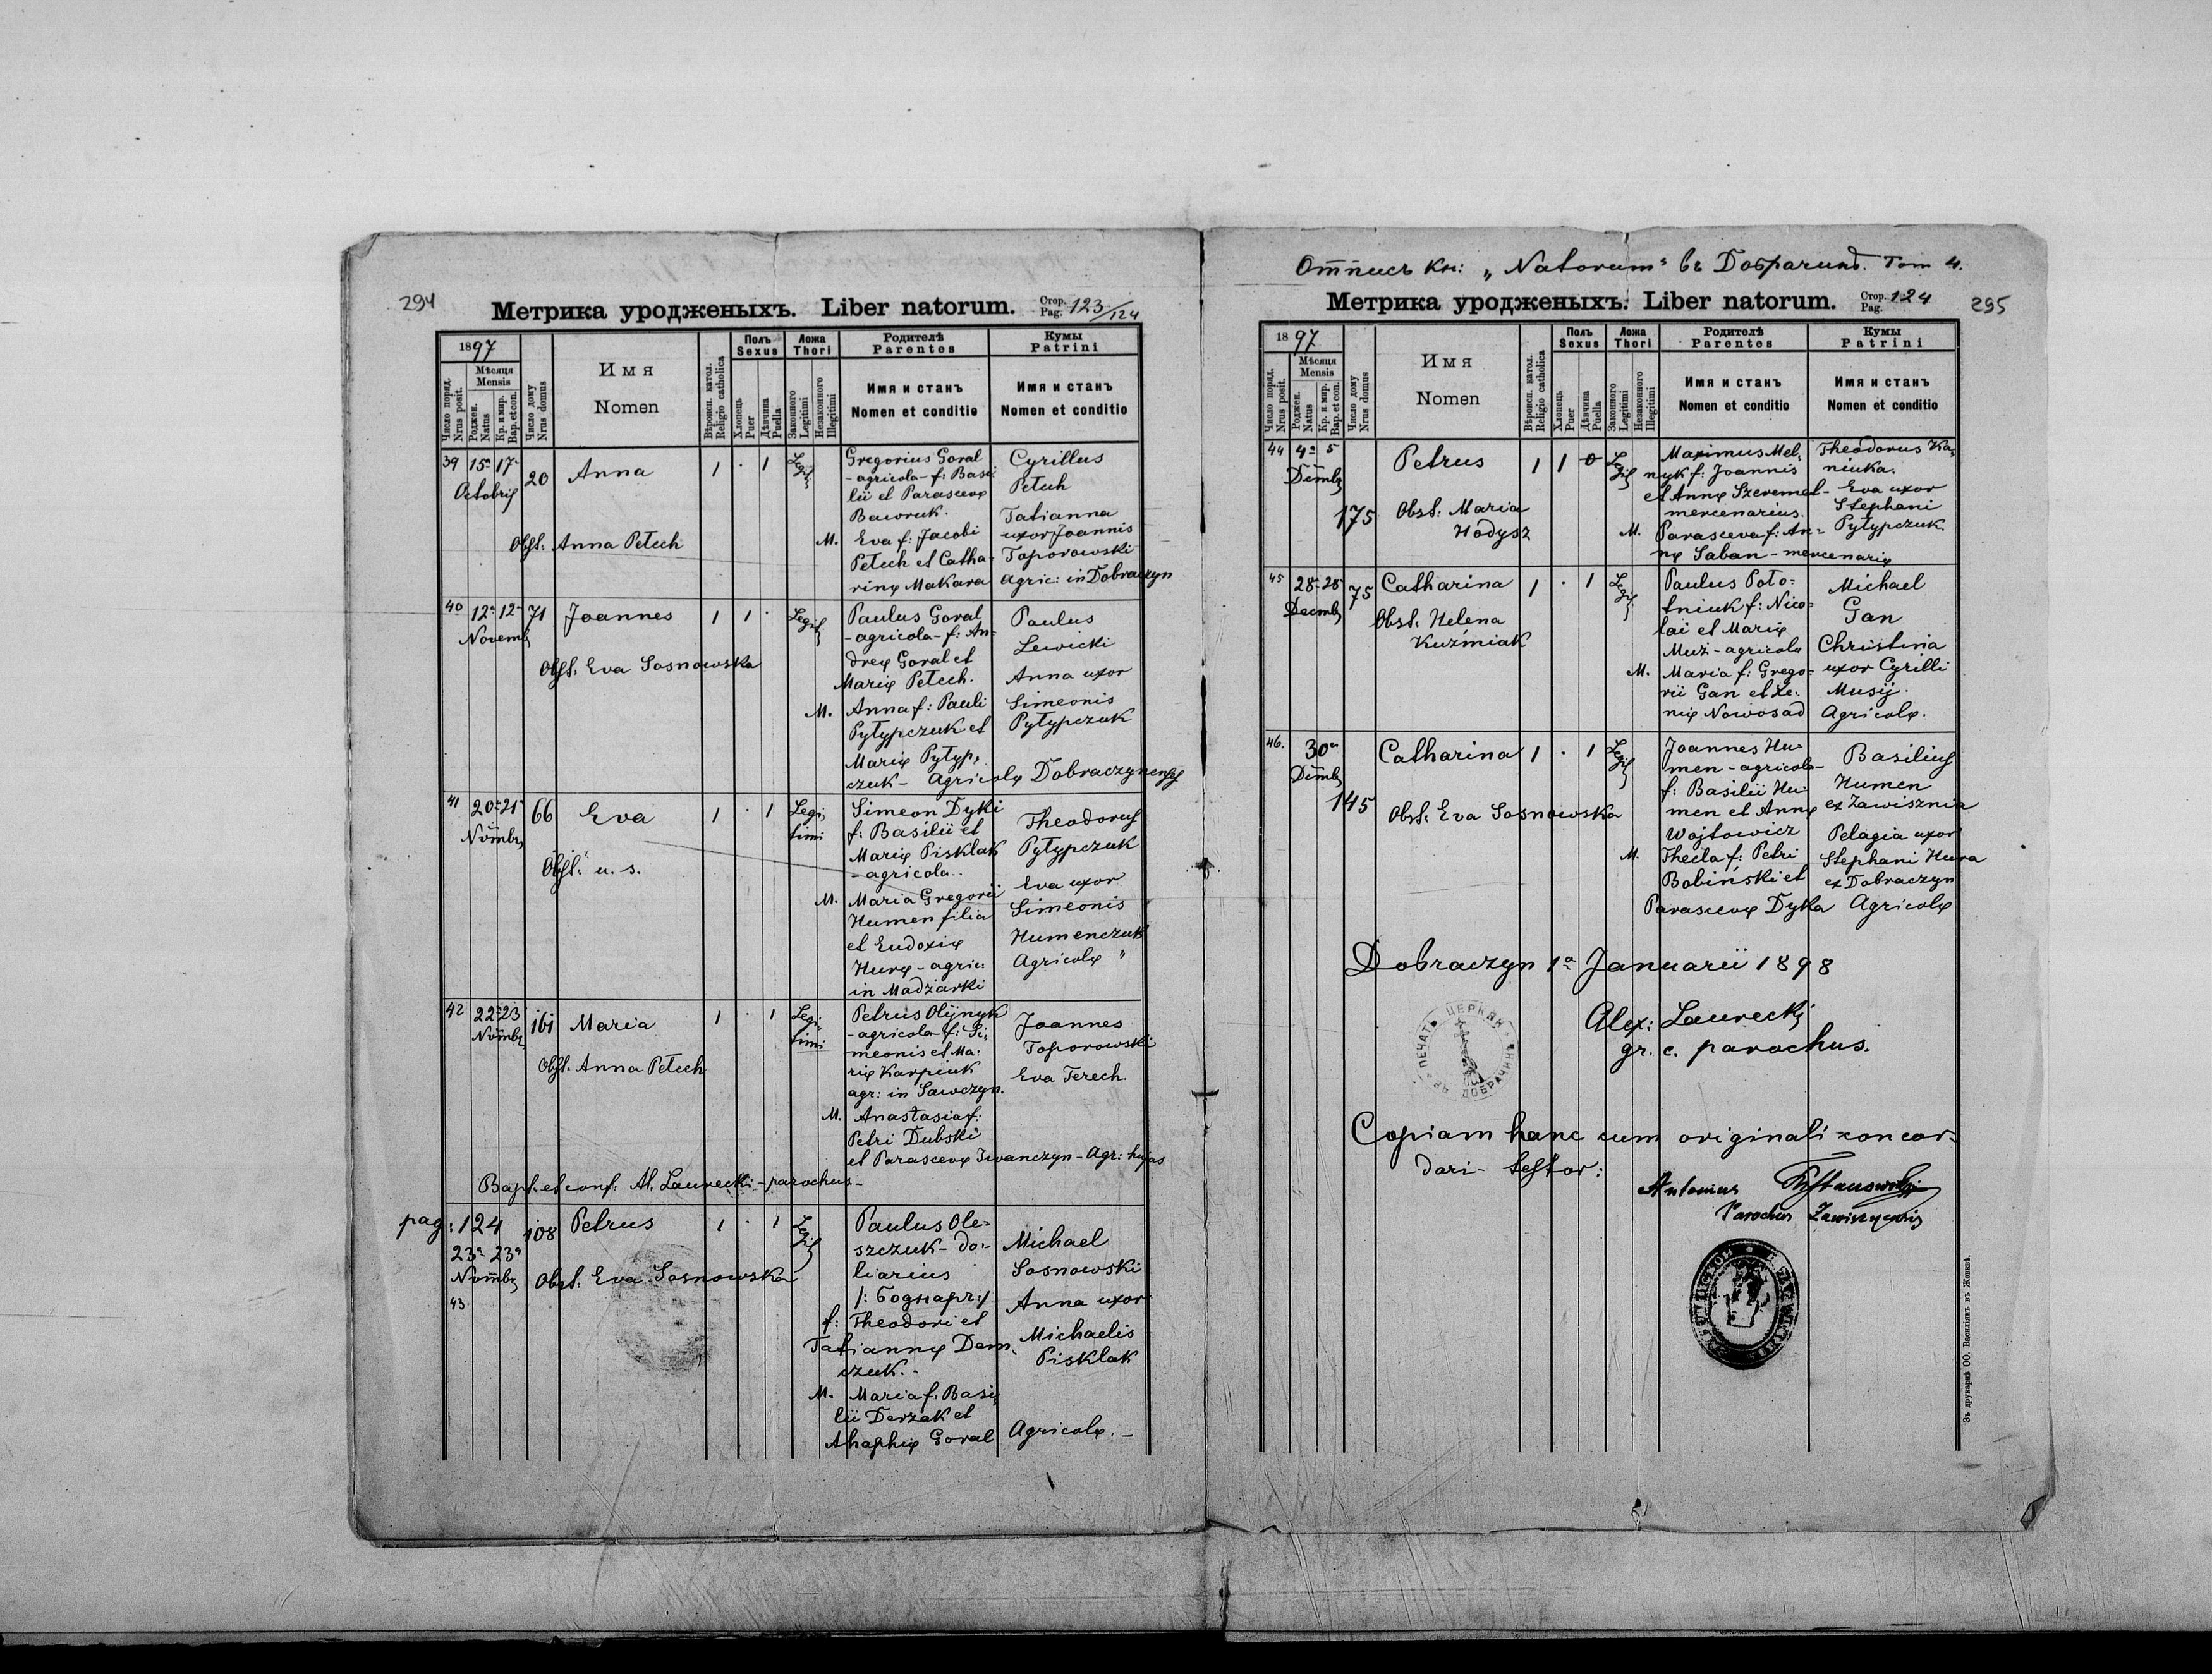 294
Метрика уродженыхъ. Liber natorum. Стор. Pag. 123/124
1897
Число поряд. Nrus posit.
Мѣсяця Mensis
Роджен. Natus
Кр. и мир. Bap. et con.
Число дому Nrus domus
Имя Nomen
Вѣроисп. катол. Religio catholica
Полъ Sexus
Хлопець Puer
Дѣвчина Puella
Ложа Thori
Законного Legitimi
Незаконного Illegitimi
Родителѣ Parentes
Имя и станъ Nomen et conditio
Кумы Patrini
Имя и станъ Nomen et conditio
39 15a 17a Octobris 20 Anna 1 . 1 Legit
Obst. Anna Petech
Gregorius Goral
- agricola - f: Basi
lii et Parascevę
Baworuk.
M. Eva f: Jacobi
Petech et Catha-
rinę Makara
Cyrillus
Petech
Tatianna
uxor Joannis
Toporowski
Agric: in Dobraczyn
40 12a 12a Novemb 71 Joannes 1 1 . Legit
Obst. Eva Sosnowska
Paulus Goral
- agricola - f: An-
dreę Goral et
Marię Petech.
M. Anna f: Pauli
Pyłypczuk et
Marię Pyłyp,
czuk - Agricolę Dobraczynensęs
Paulus
Lewicki
Anna uxor
Simeonis
Pyłypczuk
41 20a 21a Novmb 66 Eva 1 . 1 Legi,
timi
Obst. u. s.
Simeon Dyki
f: Basilii et
Marię Pisklak
- agricola..
M. Maria Gregorii
Humen filia
et Eudoxię
Hurę - agric:
in Madziarki
Theodorus
Pyłypczuk
Eva uxor
Simeonis
Humenczuk
Agricolę "
42 22a 23 Novmb 161 Maria 1 . 1 Legi,
timi
Obst. Anna Petech
Petrus Olijnyk
- agricola - f: Si,
meonis et Ma:
rię Karpiuk
agr: in Sawczyn.
M. Anastasia f:
Petri Dubski
et Parascevę Iwanczyn - Agr: hujas
Joannes
Toporowski
Eva Terech.
Bapt. et conf. Al. Laurecki - parochus -
pag: 124
23a 23a Novmb 43 108 Petrus 1 . 1 Legit
Obst: Eva Sosnowska
Paulus Ole-
szczuk - do-
liarius
/: Боднарг:/
f: Theodori et
Tatiannę Dem,
czuk.-
M. Maria f: Basi,
lii Derzak et
Ahaphię Goral
Michael
Sosnowski
Anna uxor
Michaelis
Pisklak
Agricolę. -
Отписъ кн: „Natorum" въ Добрачинѣ. Tom 4.
Метрика уродженыхъ. Liber natorum. Стор. Pag. 124
295
1897
Число поряд. Nrus posit.
Мѣсяця Mensis
Роджен. Natus
Кр. и мир. Bap. et con.
Число дому Nrus domus
Имя Nomen
Вѣроисп. катол. Religio catholica
Полъ Sexus
Хлопець Puer
Дѣвчина Puella
Ложа Thori
Законного Legitimi
Незаконного Illegitimi
Родителѣ Parentes
Имя и станъ Nomen et conditio
Кумы Patrini
Имя и станъ Nomen et conditio
44 4a 5 Dcmb 175 Petrus 1 1 0 Legit
Obst: Maria
Hodysz
Maximus Mel,
nyk f: Joannis
et Annę Szeremet -
mercenarius.
M. Parasceva f: An-
nę Saban - mercenarię
Theodorus Ka,
niuka.
Eva uxor
Stephani
Pyłypczuk.
45 28a 28 Decmb 75 Catharina 1 . 1 Legit
Obst. Helena
Kuźmiak
Paulus Poto-
tniuk f: Nico-
lai et Marię
Muż - agricola
M. Maria f: Grego-
rii Gan et Xe:
nię Nowosad
Michael
Gan
Christina
uxor Cyrilli
Musij.
Agricolę.
46. 30a Dcmb 145 Catharina 1 . 1 Legit
Obst. Eva Sosnowska
Joannes Hu-
men - agricola -
f: Basilii Hu-
men et Annę
Wojtowicz
M. Thecla f: Petri
Bobiński et
Parascevę Dyka
Basilius
Humen
ex Zawisznia
Pelagia uxor
Stephani Hura
ex Dobraczyn
Agricolę
Dobraczyn 1a Januarii 1898
Alex: Laurecki
gr. c. parochus.
ПЕЧАТЬ ЦЕРКВИ ДОБРАЧИН
Copiam hanc cum originali concor-
dari - testor:
Antonius
Parochus
Зъ друкарнѣ ОО. Василіянъ въ Жовквѣ.